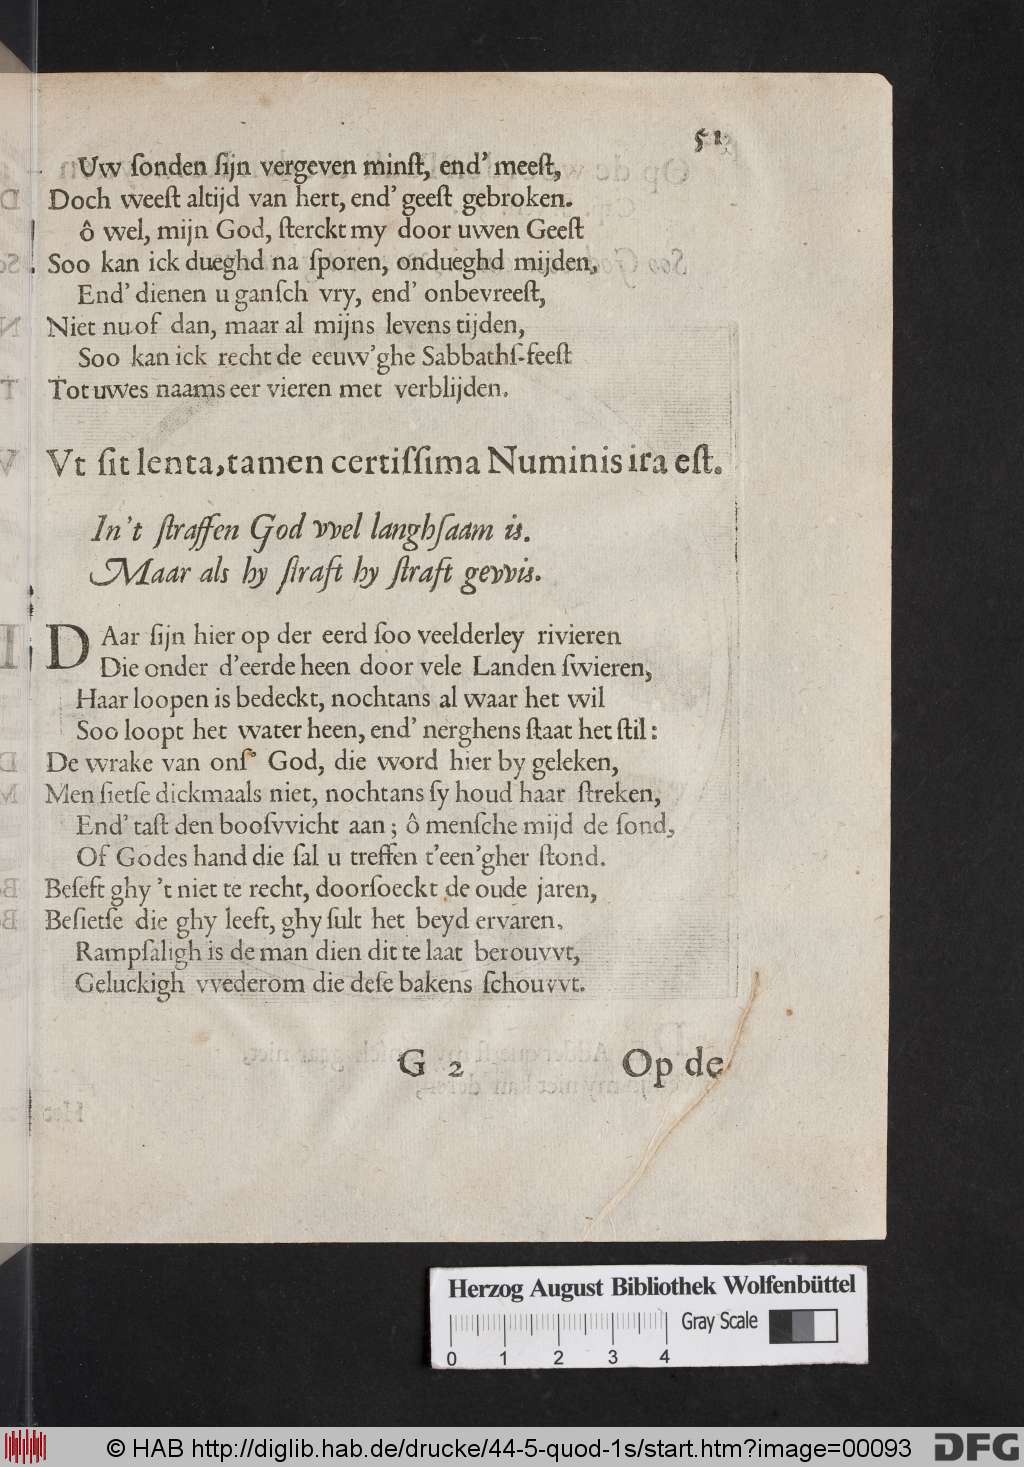 51
Uw ſonden ſijn vergeven minſt, end' meeſt,
Doch weeſt altijd van hert, end' geeſt gebroken.
ô wel, mijn God, ſterckt my door uwen Geeſt
Soo kan ick dueghd na ſporen, ondueghd mijden,
End' dienen u ganſch vry, end' onbevreeſt,
Niet nu of dan, maar al mijns levens tijden,
Soo kan ick recht de eeuw'ghe Sabbathſ-feeſt
Tot uwes naams eer vieren met verblijden.
Vt ſit lenta, tamen certiſſima Numinis ira eſt.
In't ſtraffen God vvel langhſaam is.
Maar als hy ſtraft hy ſtraft gevvis.
DAar ſijn hier op der eerd ſoo veelderley rivieren
Die onder d'eerde heen door vele Landen ſwieren,
Haar loopen is bedeckt, nochtans al waar het wil
Soo loopt het water heen, end' nerghens ſtaat het ſtil:
De wrake van onſ' God, die word hier by geleken,
Men ſietſe dickmaals niet, nochtans ſy houd haar ſtreken,
End' taſt den booſvvicht aan; ô menſche mijd de ſond,
Of Godes hand die ſal u treffen t'een'gher ſtond.
Beſeft ghy 't niet te recht, doorſoeckt de oude jaren,
Beſietſe die ghy leeft, ghy ſult het beyd ervaren,
Rampſaligh is de man dien dit te laat berouvvt,
Geluckigh vvederom die deſe bakens ſchouvvt.
G 2 Op de
Herzog August Bibliothek Wolfenbüttel
Gray Scale
0 1 2 3 4
© HAB http://diglib.hab.de/drucke/44-5-quod-1s/start.htm?image=00093 DFG